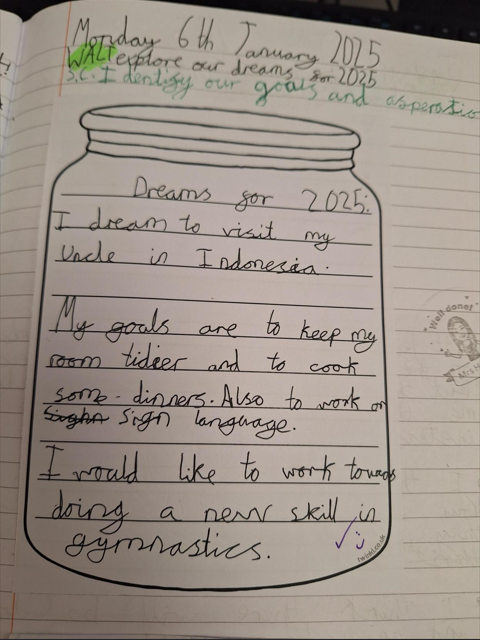 Monday 6th January 2025
WALT explore our dreams for 2025
S.C. Identify our goals and asperatio
Dreams for 2025:
I dream to visit my
Uncle in Indonesia.
My goals are to keep my
room tidier and to cook
some dinners. Also to work on
Sign language.
I would like to work towards
doing a new skill in
gymnastics.
twinkl.co.uk
"Well done!"